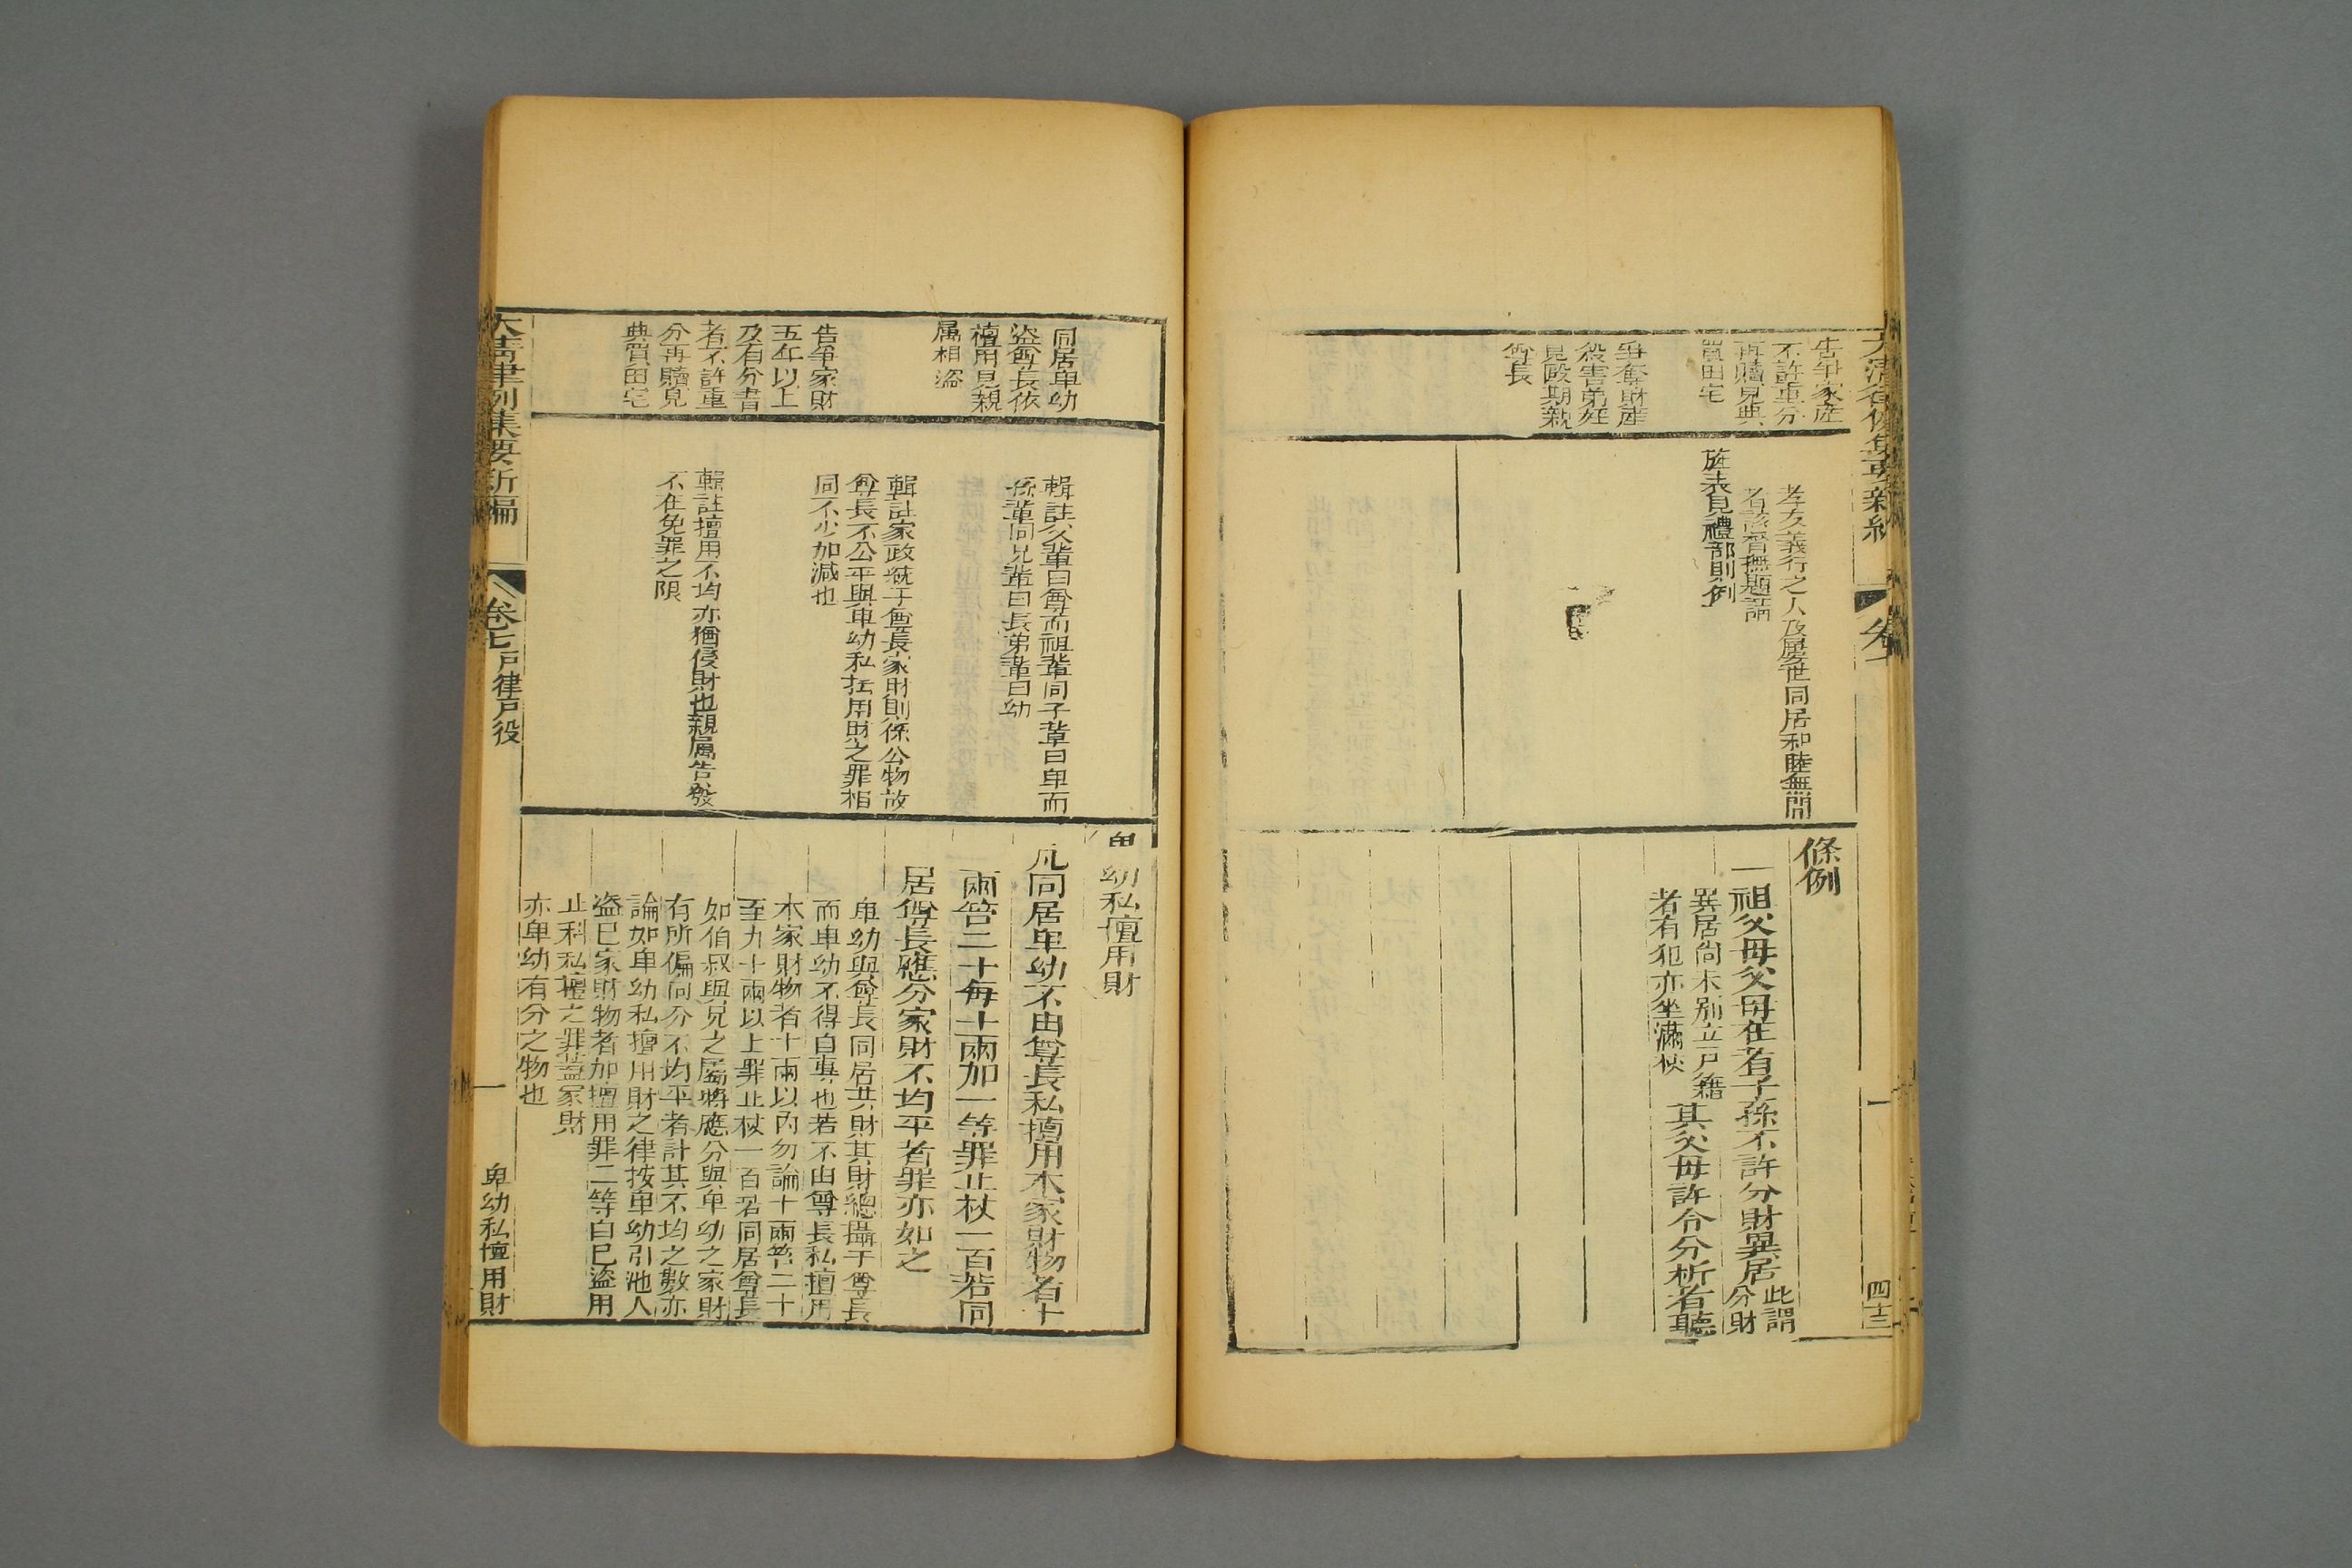 告爭家產
不許重分
再贖見典
買田宅
爭奪財產
殺害弟姪
見毆期親
尊長
孝友義行之人及屢世同居和睦無間
者該督撫題請
旌表見禮部則例
條例
一祖父母父母在者子孫不許分財異居此謂分財
異居尚未別立戶籍
者有犯亦坐滿杖
其父母許令分析者聽
四十三
同居卑幼
盜尊長依
擅用見親
属相盜
告爭家財
五年以上
及有分書
者不許重
分再贖見
典買田宅
輯註父輩曰尊而祖輩同子輩曰卑而
孫輩同兄輩曰長弟輩曰幼
輯註家政統于尊長家財則係公物故
尊長不公平與卑幼私擅用財之罪相
同不少加減也
輯註擅用不均亦猶侵財也親属告發
不在免罪之限
卑幼私擅用財
凡同居卑幼不由尊長私擅用本家財物者十
兩笞二十每十兩加一等罪止杖一百若同
居尊長應分家財不均平者罪亦如之
卑幼與尊長同居共財其財總攝于尊長
而卑幼不得自專也若不由尊長私擅用
本家財物者十兩以內勿論十兩笞二十
至九十兩以上罪止杖一百若同居尊長
如伯叔與兄之屬將應分與卑幼之家財
有所偏向分不均平者計其不均之數亦
論如卑幼私擅用財之律按卑幼引他人
盜己家財物者加擅用罪二等自己盜用
止科私擅之罪蓋家財
亦卑幼有分之物也
大清律例集要新編
卷七
戶律戶役
一
卑幼私擅用財